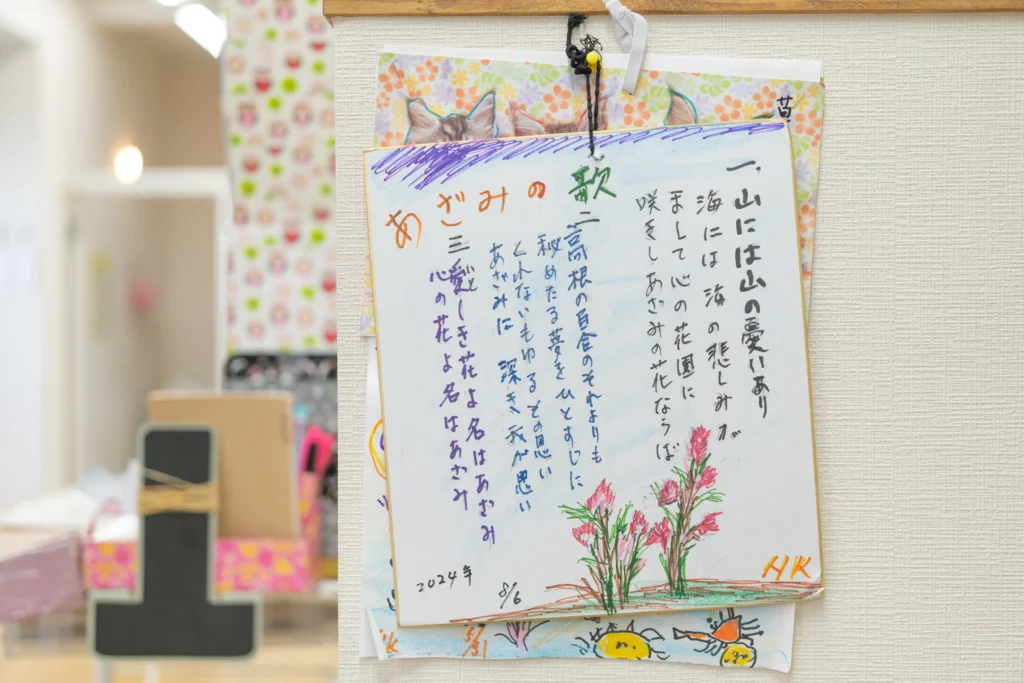 あざみの歌
一、山には山の憂いあり
海には海の悲しみが
まして心の花園に
咲きしあざみの花ならば
二高根の百合のそれよりも
秘めたる夢をひとすじに
くれないもゆるその思い
あざみは深き我が思い
三愛しき花よ名はあざみ
いと
心の花よ名はあざみ
2024年
8/6
HK
5/31